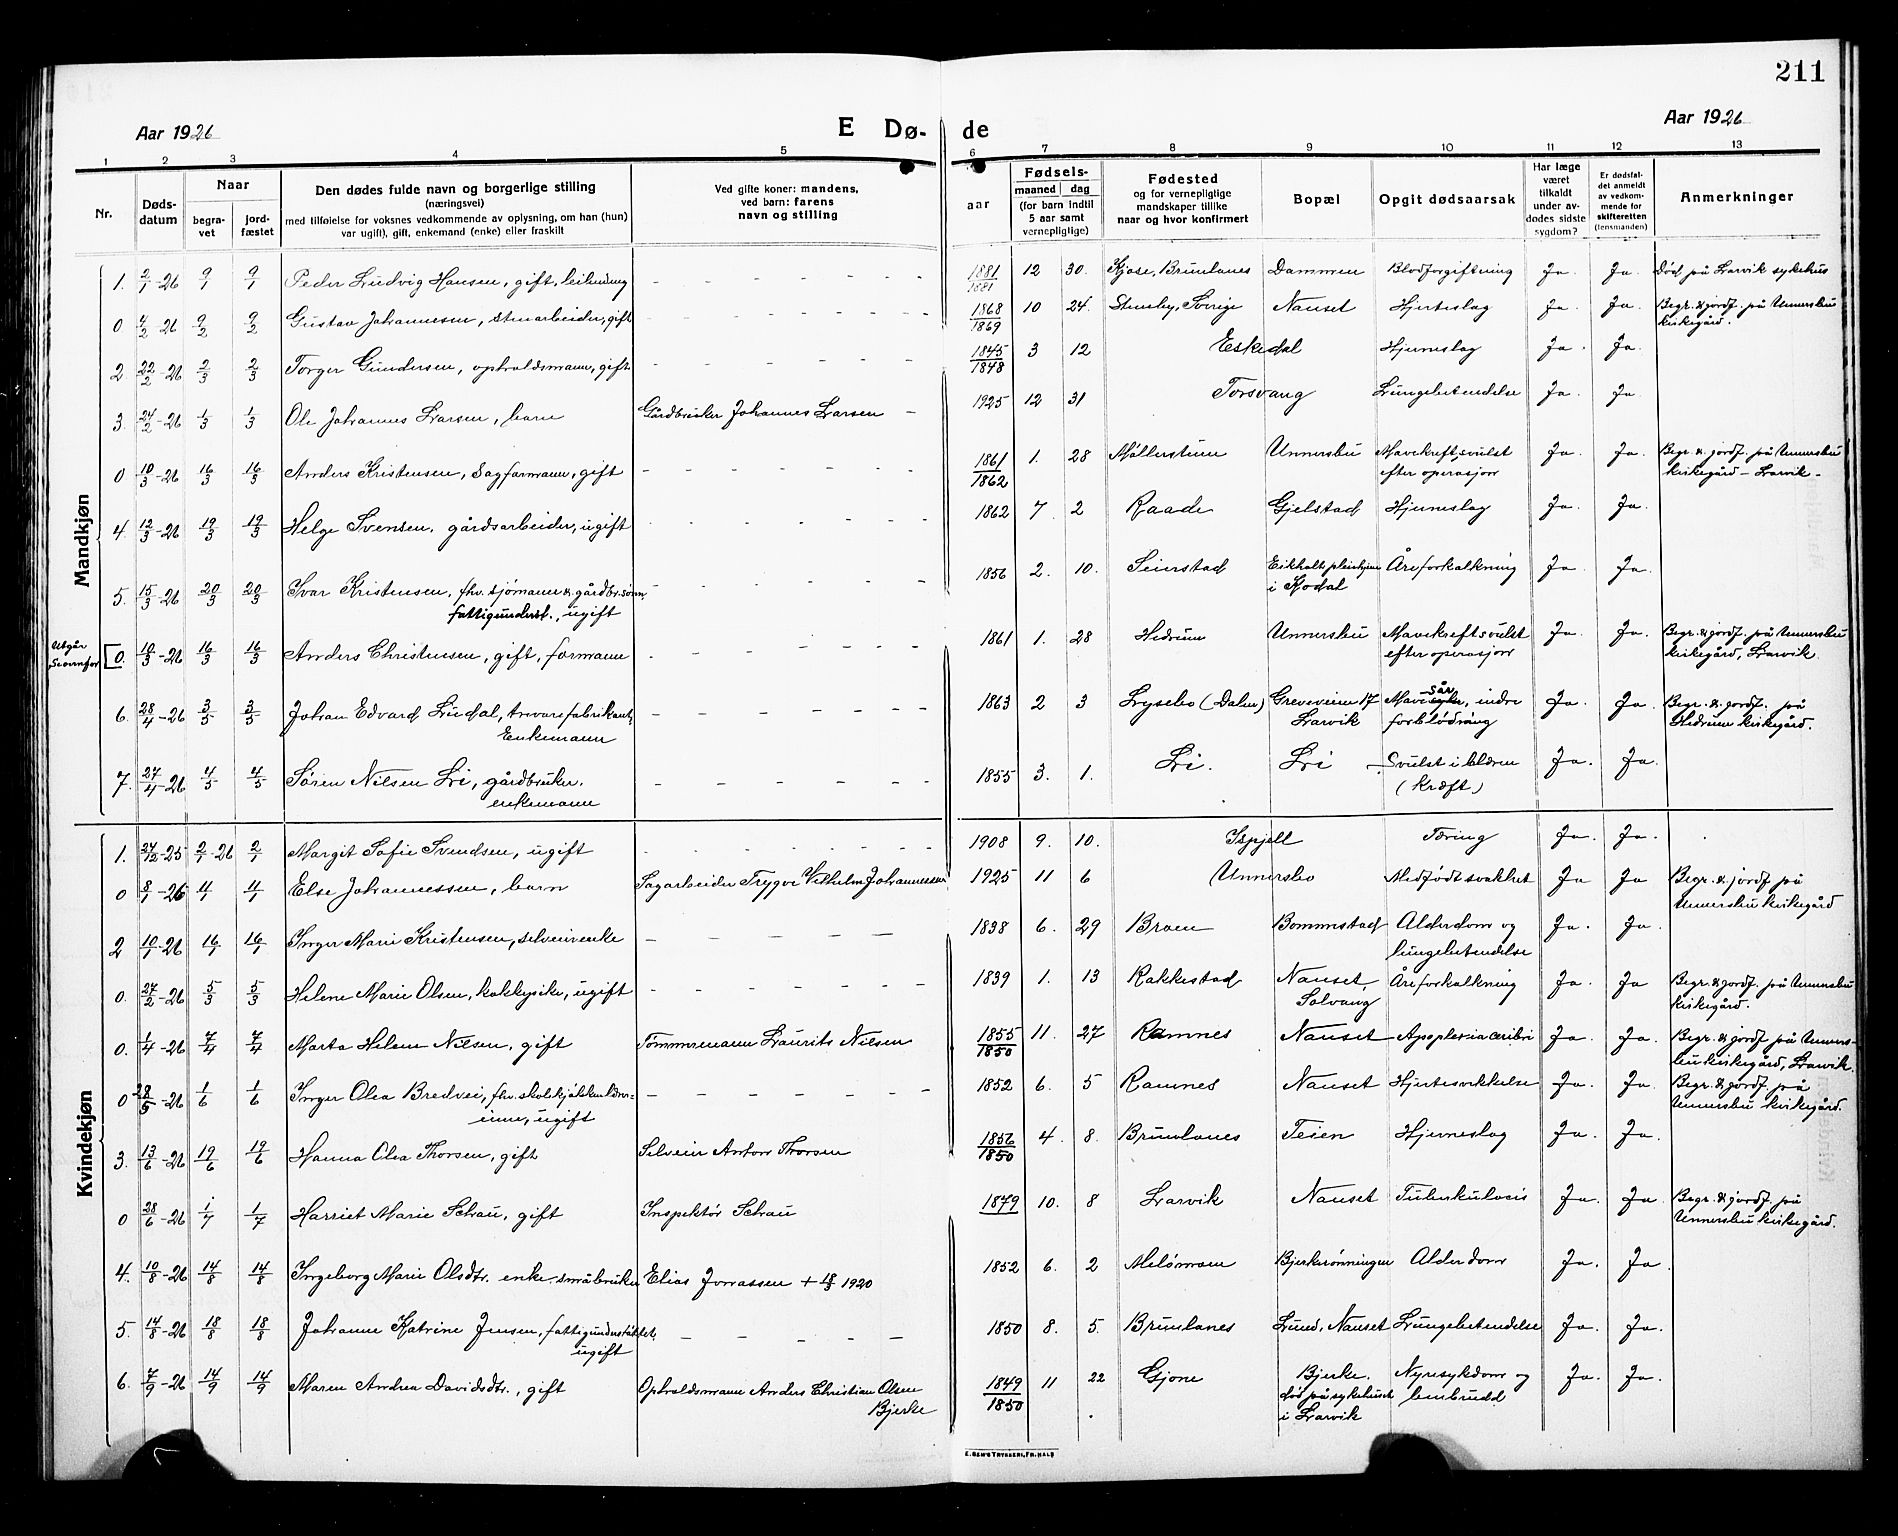 211
Aar 1926
E Dø-
de
Aar 1926
1 2 3 4 5 6 7 8 9 10 11 12 13
Nr.
Døds-
datum
Naar
begra-
vet
jord-
fæstet
Den dødes fulde navn og borgerlige stilling
(næringsvei)
med tilføielse for voksnes vedkommende av oplysning, om han (hun)
var ugift), gift, enkemand (enke) eller fraskilt
Ved gifte koner: mandens,
ved barn: farens
navn og stilling
Fødsels-
aar
maaned dag
(for barn indtil
5 aar samt
vernepligtige)
Fødested
og for vernepligtige
mandskaper tillike
naar og hvor konfirmert
Bopæl
Opgit dødsaarsak
Har læge
været
tilkaldt
under av-
dødes sidste
sygdom?
Er dødsfal-
det anmeldt
av vedkom-
mende for
skifteretten
(lensmanden)
Anmerkninger
Mandkjøn
1. 2/1-26 9/1 9/1 Peder Ludvig Hansen, gift, leilending - - - - - - 1881/1881 12 30. Kjose, Brunlanes Dammen Blodforgiftning Ja. Ja. Død på Larvik sykehus
0 4/2-26 9/2 9/2 Gustav Johannesen, stenarbeider, gift - - - - - - 1868/1869 10 24. Stenby, Sverige Nanset Hjerteslag Ja. Ja. Begr. & jordf. på Unnersbu
kirkegård.
2 22/2-26 2/3 2/3 Torger Gundersen, opholdsmann, gift - - - - - - 1845/1848 3 12 Eskedal Hjerneslag Ja. Ja.
3. 24/2-26 1/3 1/3 Ole Johannes Larsen, barn Gårdbruker Johannes Larsen - 1925 12 31 Torsvang Lungebetendelse Ja. Ja.
0 10/3-26 16/3 16/3 Anders Kristensen, Sagformann, gift - - - - - - 1861/1862 1. 28 Møllerstuen Unnersbu Mavekreft, svulst
efter operasjon Ja. Ja. Begr. & jordf. på Unnersbu
kirkegård - Larvik -
4. 12/3-26 19/3 19/3 Helge Svensen, gårdsarbeider, ugift - - - - - - 1862 7 2 Raade Gjelstad Hjerneslag Ja. Ja.
5. 15/3-26 20/3 20/3 Ivar Kristensen, fhv. sjømann & gårdbr.sønn
fattigunderst., ugift - - - - - - 1856 2. 10. Seierstad Eikholt pleiehjem
i Kodal Åreforkalkning Ja. Ja.
Utgår
Se ovenfor
0. 10/3-26 16/3 16/3 Anders Christensen, gift, formann - - - - - - 1861 1. 28 Hedrum Unnersbu Mavekreftsvulst
efter operasjon Ja. Ja. Begr. & jordf. på Unnersbu
kirkegård, Larvik.
6. 28/4-26 3/5 3/5 Johan Edvard Lindal, trevarefabrikant,
Enkemann - - - - - - 1863 2 3 Lysebo (Dalen) Greveveien 17
Larvik Mavesår, indre
forblødning Ja. Ja. Begr. & jordf. på
Hedrum kirkegård.
7. 27/4-26 4/5 4/5 Søren Nilsen Lie, gårdbruker,
enkemann - - - - - - 1855 3. 1. Lie. Lie Svulst i blæren
(kræft) Ja. Ja.
Kvindekjøn
1. 27/12-25 2/1-26 2/1 Margit Sofie Svendsen, ugift - - - - - - 1908 9. 10. Ispjell Tæring Ja. Ja.
0 8/1-26 4/1 4/1 Else Johannessen, barn Sagarbeider Trygve Vilhelm Johannessen 1925 11 6 Unnersbo Medfødt svakhet Ja Ja Begr. & jordf. på
Unnersbu kirkegård
2 10/1-26 16/1 16/1 Inger Marie Kristensen, selveierenke - - - - - 1838 6. 29 Braen Bommestad Alderdom og
lungebetendelse Ja. Ja.
0. 27/2-26 5/3 5/3 Helene Marie Olsen, kokkepike, ugift - - - - - - 1839 1. 13 Rakkestad Nanset,
Solvang Åreforkalkning Ja Ja Begr. & jordf. på Unnersbu
kirkegård.
0. 1/4-26 7/4 7/4 Marta Helene Nilsen, gift Tømmermann Laurits Nilsen 1855/1850 11. 27 Ramnes Nanset Apoplexia cerebri Ja. Ja. Begr. & jordf. på Unners-
bu kirkegård, Larvik.
0 28/5-26 1/6 1/6 Inger Olea Bredvei, fhv. skolekjøkkenlærer-
inne, ugift - - - - - - 1852 6. 5 Ramnes Nanset Hjertesvekkelse Ja. Ja. Begr. & jordf. på
Unnersbu kirkegård.
3. 13/6-26 19/6 19/6 Hanna Olea Thorsen, gift Selveier Anton Thorsen 1856/1850 4. 8. Brunlanes Teien Hjerneslag Ja. Ja.
0 28/6-26 1/7 1/7 Harriet Marie Schau, gift Inspektør Schau 1879 10. 8 Larvik Nanset Tuberkulosis Ja. Ja. Begr. & jordf. på
Unnersbu kirkegård.
4. 10/8-26 14/8 14/8 Ingeborg Marie Olsdtr. enke småbruker Elias Jonassen + 18/3 1920 1852 6. 2 Meløman Bjerkerønningen Alderdom Ja. Ja.
5. 14/8-26 18/8 18/8 Johanne Katrine Jensen, fattigunderstøttet,
ugift - - - - - 1850 8. 5. Brunlanes Lund, Nanset Lungebetendelse Ja. Ja.
6. 7/9-26 14/9 14/9 Maren Andrea Davidsdtr., gift Opholdsmann Anders Christian Olsen
Bjerke 1849/1850 11 22 Gjone Bjerke.
død på sykehuset
i Larvik Nyresykdom og
benbrudd Ja. Ja.
E. SEM'S TRYKKERI, FR.HALD